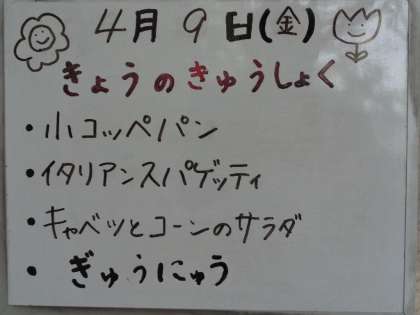 4月9日(金)
きょうのきゅうしょく
・小コッペパン
・イタリアンスパゲッティ
・キャベツとコーンのサラダ
・ぎゅうにゅう